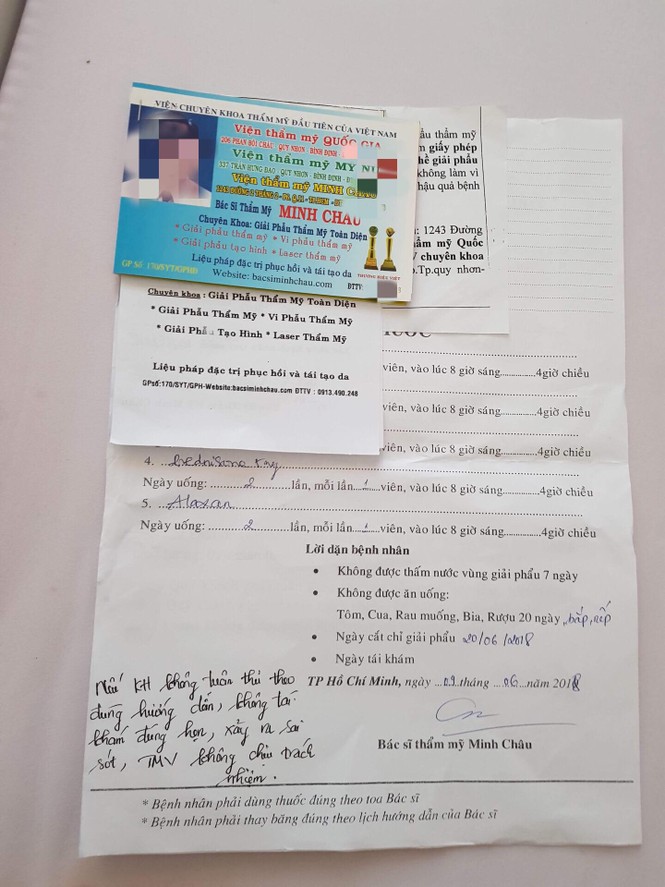 VIỆN CHUYÊN KHOA THẨM MỸ ĐẦU TIÊN CỦA VIỆT NAM
Viện thẩm mỹ QUỐC GIA
206 PHAN BỘI CHÂU - QUY NHƠN - BÌNH ĐỊNH
Viện thẩm mỹ MỸ
337 TRẦN HƯNG ĐẠO - QUY NHƠN - BÌNH ĐỊNH
Viện thẩm mỹ MINH
Bác Sĩ Thẩm Mỹ MINH CHÂU
Chuyên Khoa: Giải Phẫu Thẩm Mỹ Toàn Diện
* Giải phẫu thẩm mỹ * Vi phẫu thẩm mỹ
* Giải phẫu tạo hình * Laser thẩm mỹ
Liệu pháp đặc trị phục hồi và tái tạo da
GP Số: 170/SYT/GPHĐ
Website: bacsiminhchau.com ĐTTV:
THƯƠNG HIỆU VIỆT
thẩm mỹ
giấy phép
giải phẫu
không làm vì
hậu quả bệnh
1243 Đường
mỹ Quốc
chuyên khoa
Tp.quy nhơn-
Chuyên khoa : Giải Phẫu Thẩm Mỹ Toàn Diện
* Giải Phẫu Thẩm Mỹ * Vi Phẫu Thẩm Mỹ
* Giải Phẫu Tạo Hình * Laser Thẩm Mỹ
Liệu pháp đặc trị phục hồi và tái tạo da
GPsố:170/SYT/GPH-Website:bacsiminhchau.com ĐTTV : 0913.490.248
viên, vào lúc 8 giờ sáng............4giờ chiều
viên, vào lúc 8 giờ sáng............4giờ chiều
viên, vào lúc 8 giờ sáng............4giờ chiều
4.
Ngày uống: 2 lần, mỗi lần 1 viên, vào lúc 8 giờ sáng............4giờ chiều
5. Alaxan
Ngày uống: 2 lần, mỗi lần 1 viên, vào lúc 8 giờ sáng............4giờ chiều
Lời dặn bệnh nhân
• Không được thấm nước vùng giải phẩu 7 ngày
• Không được ăn uống:
Tôm, Cua, Rau muống, Bia, Rượu 20 ngày, bắp, nếp
• Ngày cắt chỉ giải phẩu 20/06/2018
• Ngày tái khám
TP Hồ Chí Minh, ngày ...09...tháng ...06...năm 2018
Bác sĩ thẩm mỹ Minh Châu
Nếu KH không tuân thủ theo
đúng hướng dẫn, không tái
khám đúng hẹn, xảy ra sai
sót, TMV không chịu trách
nhiệm.
* Bệnh nhân phải dùng thuốc đúng theo toa Bác sĩ
* Bệnh nhân phải thay băng đúng theo lịch hướng dẫn của Bác sĩ